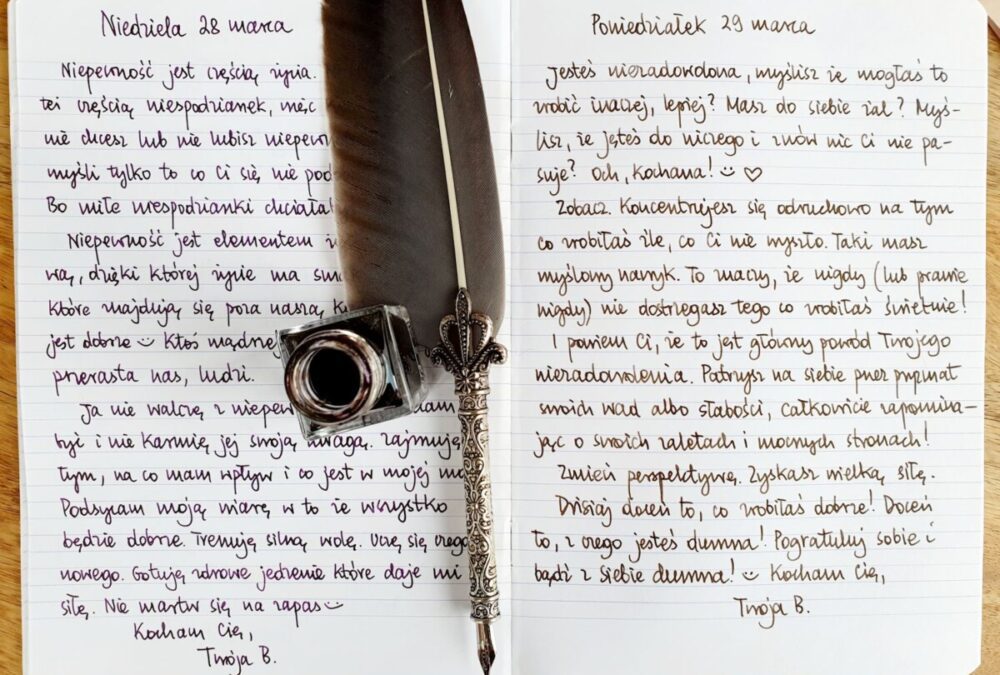 Niedziela 28 marca
Niepewność jest częścią życia.
też częścią niespodzianek, więc
nie chcesz lub nie lubisz niepew
myśli tylko to co Ci się nie pod
Bo miłe niespodzianki chciała
Niepewność jest elementem
wą, dzięki której życie ma
które znajdują się poza naszą
jest dobrze Ktoś
przerasta nas, ludzi.
Ja nie walczę z niepew
być i nie karmię jej swoją uwagą. Zajmuję
tym, na co mam wpływ i co jest w mojej
Podsycam moją wiarę w to że wszystko
będzie dobrze. Trenuję silną wolę. Uczę się czego
nowego. Gotuję zdrowe jedzenie które daje mi
siłę. Nie martw się na zapas
Kocham Cię,
Twoja B.
Poniedziałek 29 marca
Jesteś niezadowolona, myślisz że mogłaś to
zrobić inaczej, lepiej? Masz do siebie żal? Myś-
lisz, że jesteś do niczego i znów nic Ci nie pa-
suje? Och, Kochana! ♡
Zobacz. Koncentrujesz się odruchowo na tym
co zrobiłaś źle, co Ci nie wyszło. Taki masz
myślowy nawyk. To znaczy, że nigdy (lub prawie
nigdy) nie dostrzegasz tego co zrobiłaś świetnie!
I powiem Ci, że to jest główny powód Twojego
niezadowolenia. Patrzysz na siebie przez pryzmat
swoich wad albo słabości, całkowicie zapomina-
jąc o swoich zaletach i mocnych stronach!
Zmień perspektywę. Zyskasz wielką siłę.
Dzisiaj doceń to, co zrobiłaś dobrze! Doceń
to, z czego jesteś dumna! Pogratuluj sobie i
bądź z siebie dumna! Kocham Cię,
Twoja B.